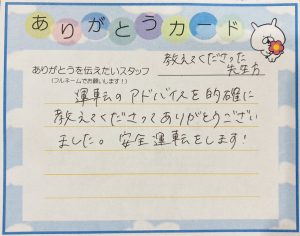 ありがとうカード
教えてくださった
先生方
ありがとうを伝えたいスタッフ
(フルネームでお願いします!)
運転のアドバイスを的確に
教えてくださってありがとうござい
ました。安全運転をします!